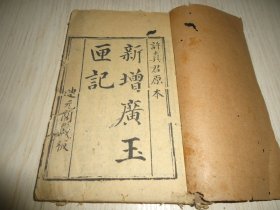 許真君原本
新增廣玉
匣記
元閣